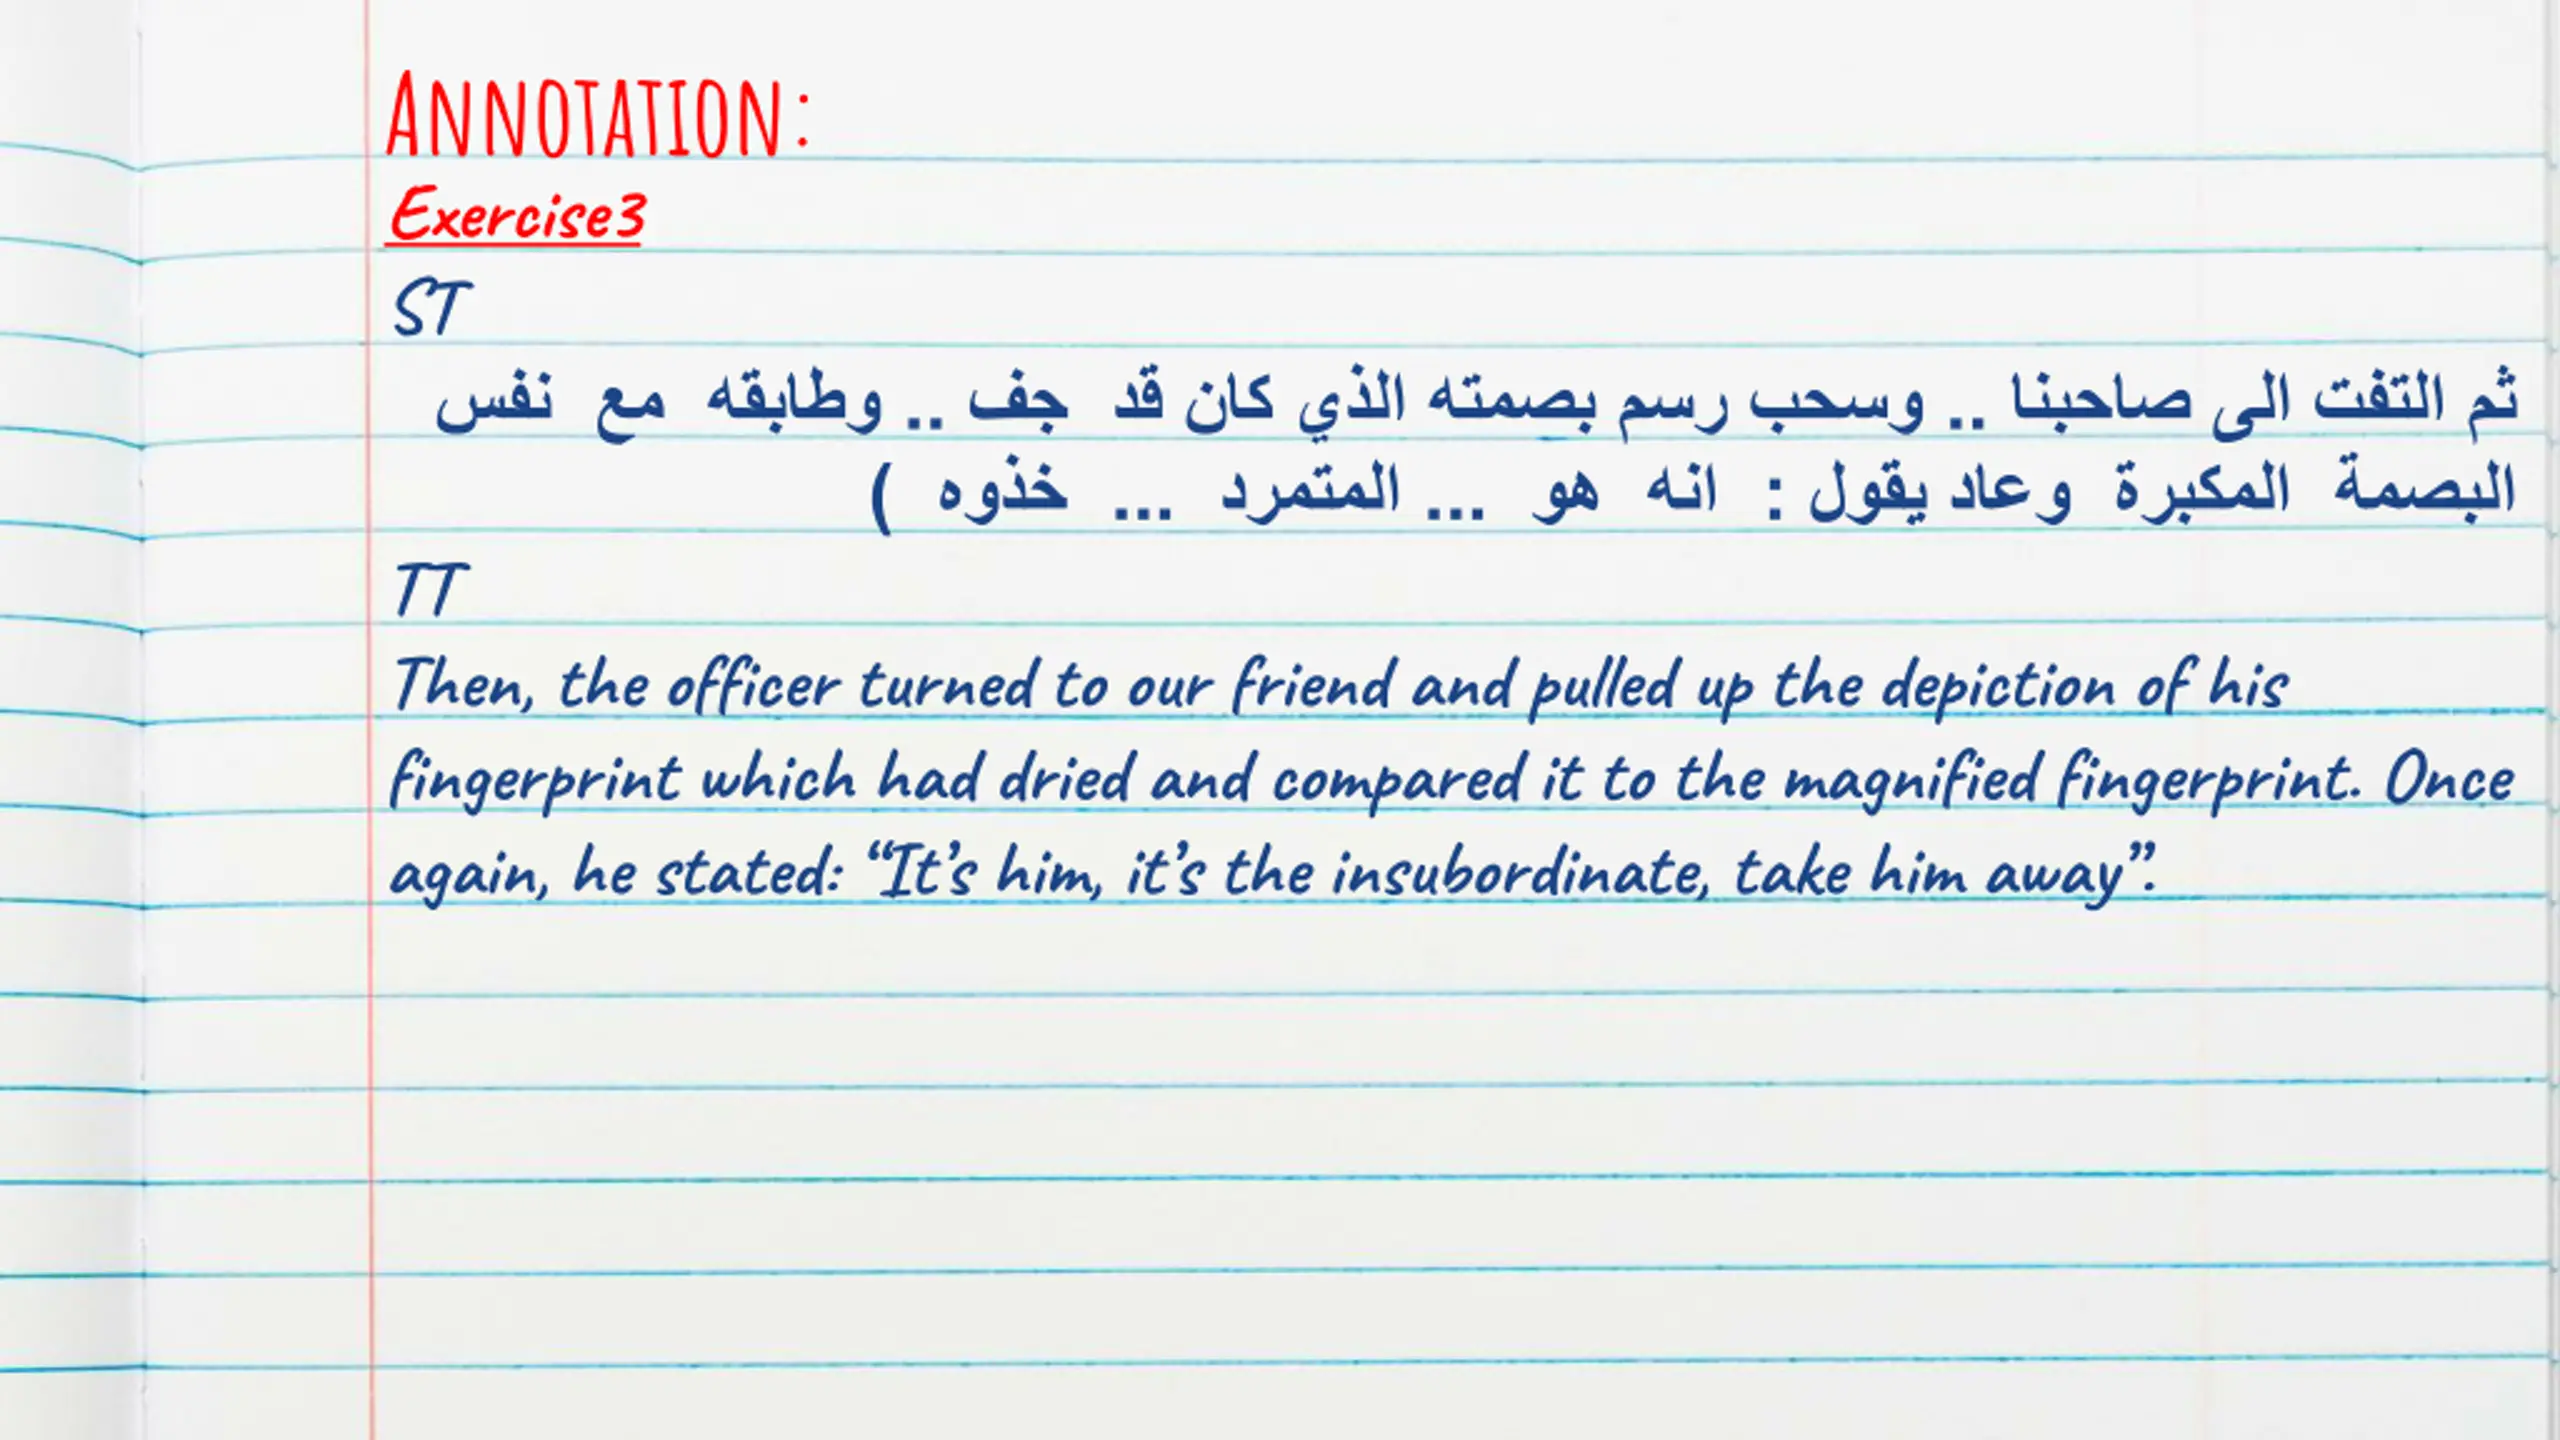 Annotation:
Exercise3
ST
ثم التفت الى صاحبنا .. وسحب رسم بصمته الذي كان قد جف .. وطابقه مع نفس
البصمة المكبرة وعاد يقول : انه هو ... المتمرد ... خذوه )
TT
Then, the officer turned to our friend and pulled up the depiction of his
fingerprint which had dried and compared it to the magnified fingerprint. Once
again, he stated: “It’s him, it’s the insubordinate, take him away”.